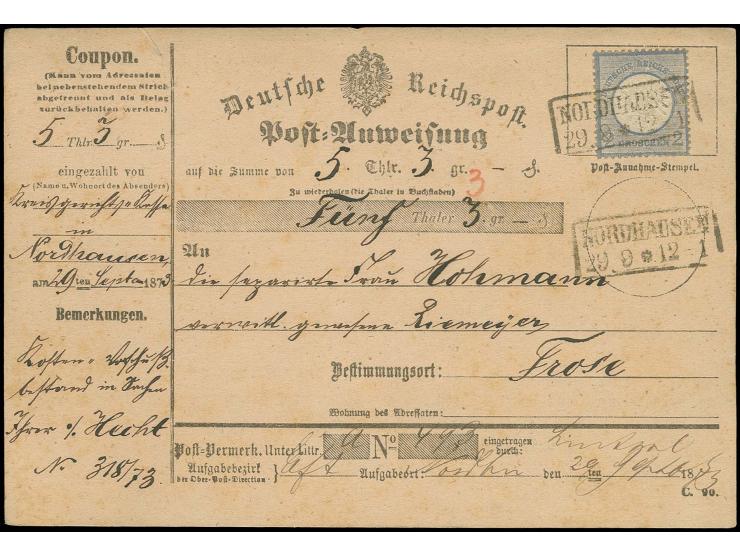 Coupon.
(Kann vom Adressaten
bei nebenstehendem Strich
abgetrennt und als Belag
zurückbehalten werden.)
5 Thlr. 3 gr. — S.
eingezahlt von
(Name u. Wohnort des Absenders)
Kreisgerichts-Kasse
in
Nordhausen
am 29ten Septr 1873
Bemerkungen.
Kosten-Vorschuß
bestand in Sachen
Ihrer ./. Hecht
No 318/73.
Deutsche Reichspost.
Post-Anweisung
auf die Summe von 5. Thlr. 3 gr. — S.
3
Zu wiederholen (die Thaler in Buchstaben)
Fünf Thaler 3. gr. — S
An
die separirte Frau Hohmann
verwittw. gewesene Ziemeyer
Bestimmungsort: Frose
Wohnung des Adressaten:
Post-Vermerk. Unter Littr. A No 493 eingetragen durch:
Aufgabebezirk
der Ober-Post-Direction
Aufgabeort: den 29 ten Septbr 1873
C. 90.
DEUTSCHE REICHS
GROSCHEN 2
NORDHAUSEN
29. 9 * 12-1
Post-Annahme-Stempel.
NORDHAUSEN
29. 9 * 12-1